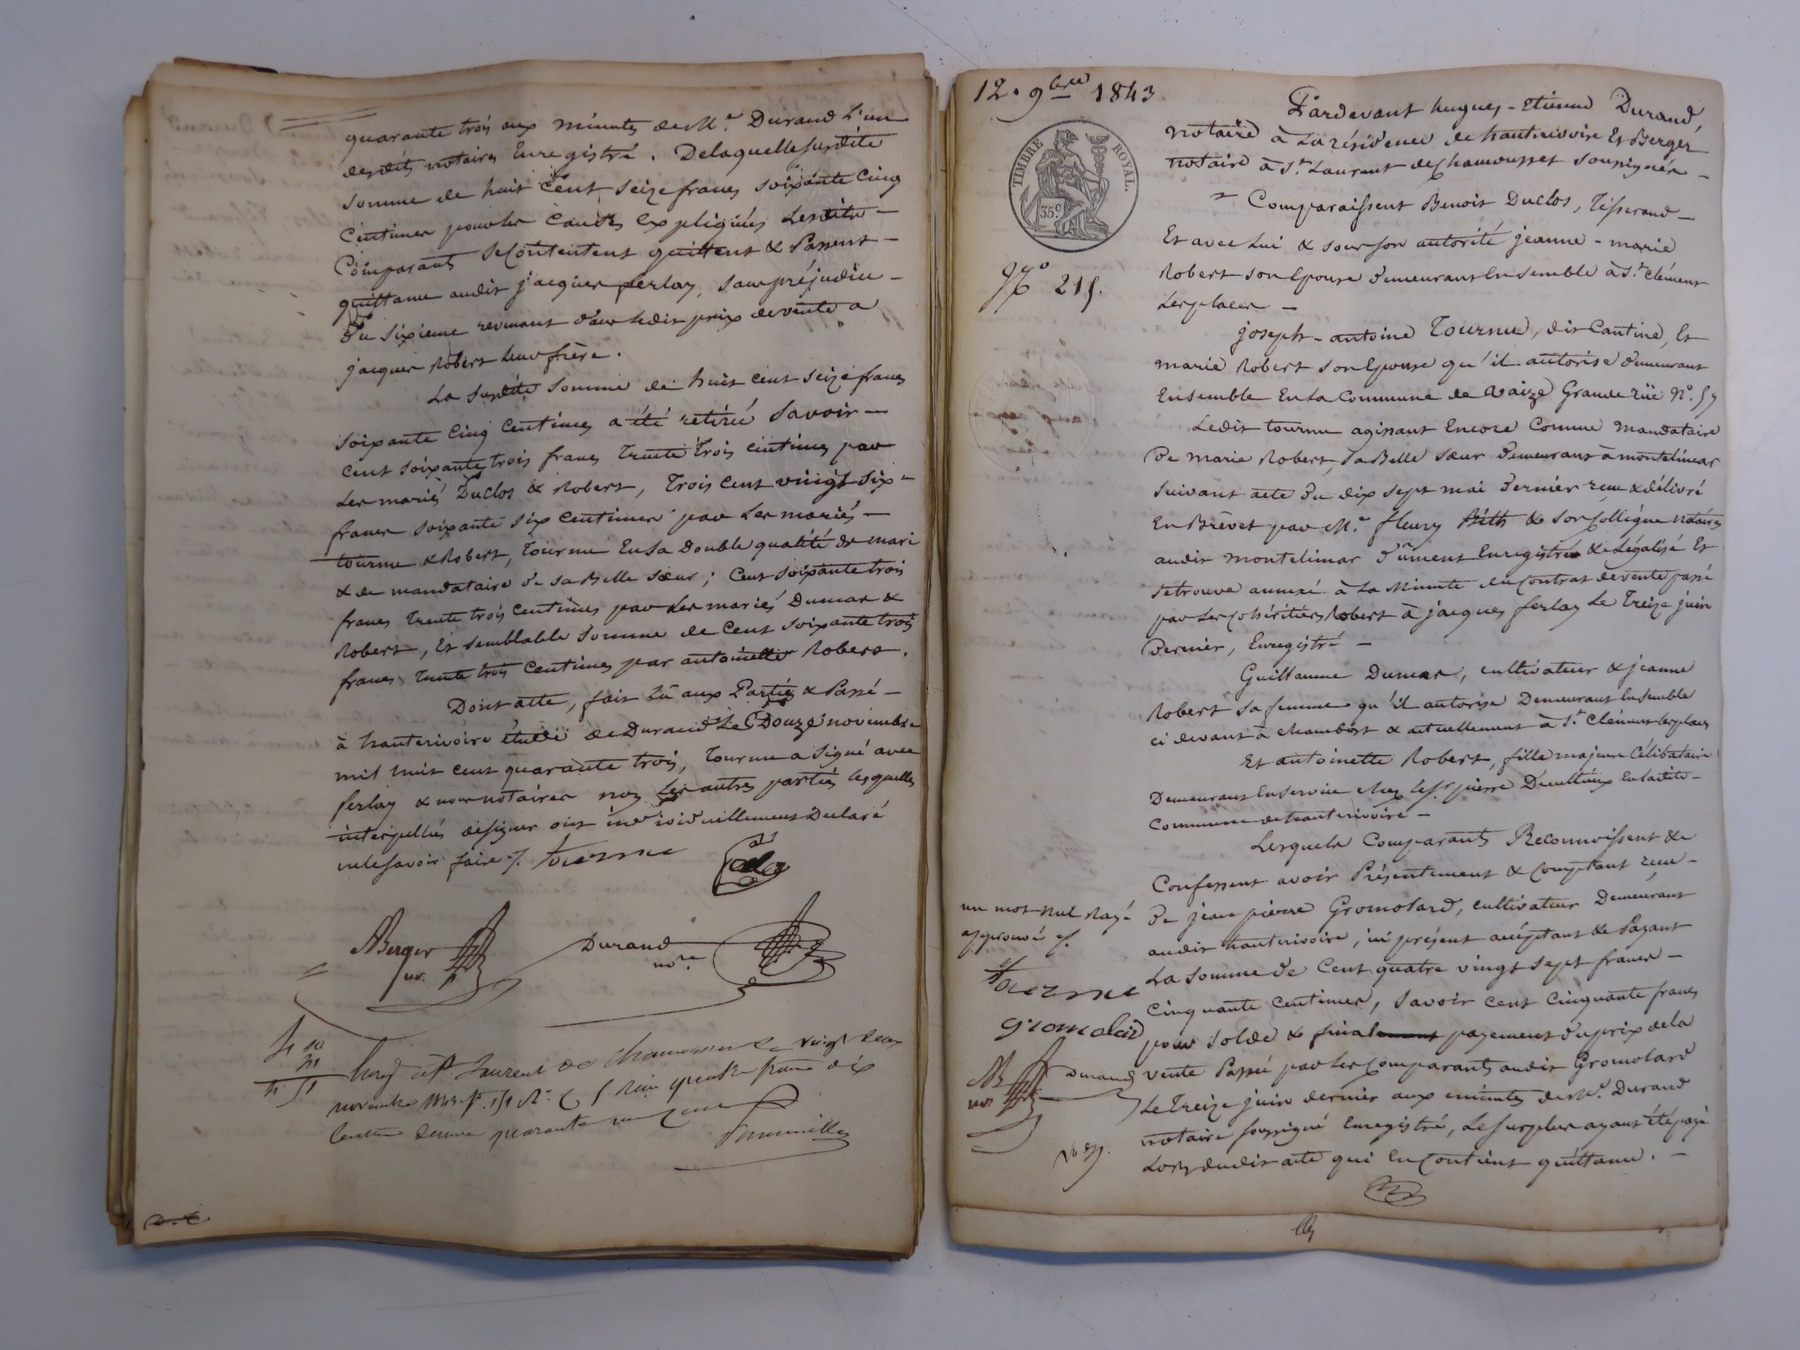 quarante trois aux minutes de Me. Durand l'un
desdits notaires Enregistré. De laquelle susdite
somme de huit Cent seize francs soixante Cinq
Centimes pour les causes Expliquées Lesdits
Comparants se contentent quittent & Passent
quittance audit jacques ferlay, sans préjudice
du sixieme revenant dans ledit prix de vente a
jacques Robert leur frère.
La susdite somme de huit cent seize francs
soixante Cinq Centimes a été retiré savoir
Cent soixante trois francs Trente Trois centimes par
Les mariés Duclos & Robert, Trois Cent vingt six
francs soixante six centimes par Les mariés
tourme & Robert, Tourme En sa Double qualité de mari
& de mandataire de sa Belle sœur; Cent soixante trois
francs Trente trois Centimes par Les mariés Dumas &
Robert, Et semblable Somme de Cent soixante trois
francs trente trois Centimes par antoinette Robert.
Dont acte, fait Lû aux Parties & Passé
à hauterivoire étude de Durand Le Douze novembre
mil huit cent quarante trois, Tourme a Signé avec
ferlay & nous notaires non Les autres parties lesquelles
interpellées de signer ont individuellement Déclaré
ne le savoir faire ./. tourme
ABerger
no.
Durand
nore.
Enreg. à St. Laurent de Chamousset le vingt deux
novembre 1843 f. 151 Ro. C. 5. Reçu quatre francs dix
Centimes decime quarante un centimes
12. 9bre 1843
TIMBRE ROYAL.
35 c
No 215.
Pardevant hugues-Etienne Durand,
notaire à La résidence de hauterivoire Et Berger
notaire à St. Laurent de Chamousset soussignés
Comparaissent Benoit Duclos, Tisserand
Et avec Lui & sous son autorité jeanne-marie
Robert son Epouse demeurant Ensemble à St. Clément
Lesplaces
joseph-antoine Tourme, dit Cantine, Et
marie Robert son Epouse qu'il autorise demeurant
Ensemble En La Commune de Vaize Grande rüe No. 57
Ledit tourme agissant Encore Comme mandataire
De marie Robert, sa Belle sœur demeurant à montelimar
suivant acte du dix sept mai dernier reçu & délivré
En Brevet par Me. fleury & son Collègue notaires
audit montelimar dûment Enregistré & Légalisé Et
se trouve annexé à La Minute du Contrat de vente passé
par Les Cohéritiers Robert à jacques ferlay Le Treize juin
Dernier, Enregistré
Guillaume Dumas, cultivateur & jeanne
Robert sa femme qu'il autorise Demeurant Ensemble
ci devant à chambost & actuellement à St. Clément lesplaces
Et antoinette Robert, fille majeure Célibataire
Demeurant En service chez le Sr. pierre En ladite
Commune de hauterivoire
Lesquels Comparants Reconnoissent &
Confessent avoir Présentement & Comptant reçu
De jean pierre Gromolard, cultivateur Demeurant
audit hauterivoire, ici présent acceptant & Payant
La somme de Cent quatre vingt sept francs
Cinquante Centimes, savoir cent Cinquante francs
pour solde & final payement du prix de la
vente Passé par Les Comparants audit Gromolard
Le Treize juin dernier aux minutes de Me. Durand
notaire soussigné Enregistré, Le surplus ayant été payé
Lors dudit acte qui En Contient quittance.
un mot nul rayé
approuvé ./.
tourme
gromolard
AB
no.
Durand